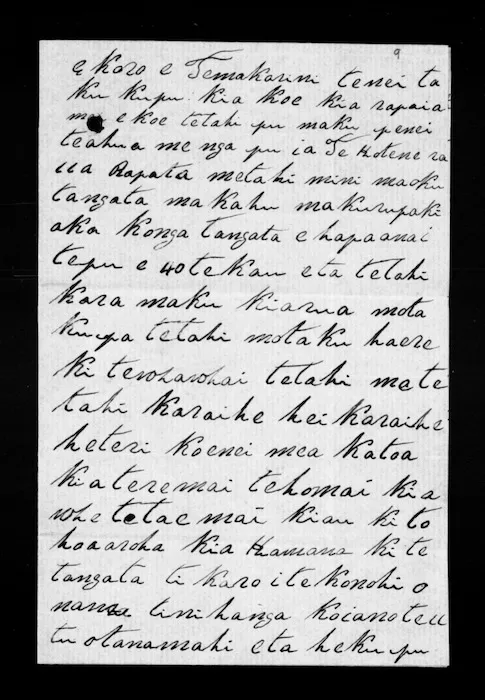 9
e Karo e Temakarini tenei ta
ku kupu kia koe kia rapaia
mai e koe tetahi pu maku penei
teahua me nga pu ia Te Hotene ra
ua Rapata metahi mini maoku
tangata makahu makurupaki
aka konga tangata e hapaanai
tepu e 40 tekau eta tetahi
kara maku kiarua mota
kupa tetahi motaku haere
ki tewhawhai tetahi mate
tahi Karaihe hei Karaihe
heteri koenei mea katoa
kia teremai tehomai kia
whe tetae mai kiau ki to
hoaaroha kia Hamana ki te
tangata ti karo ite konohi o
nana tinihanga koianoteu
tu otanamahi eta heku pu